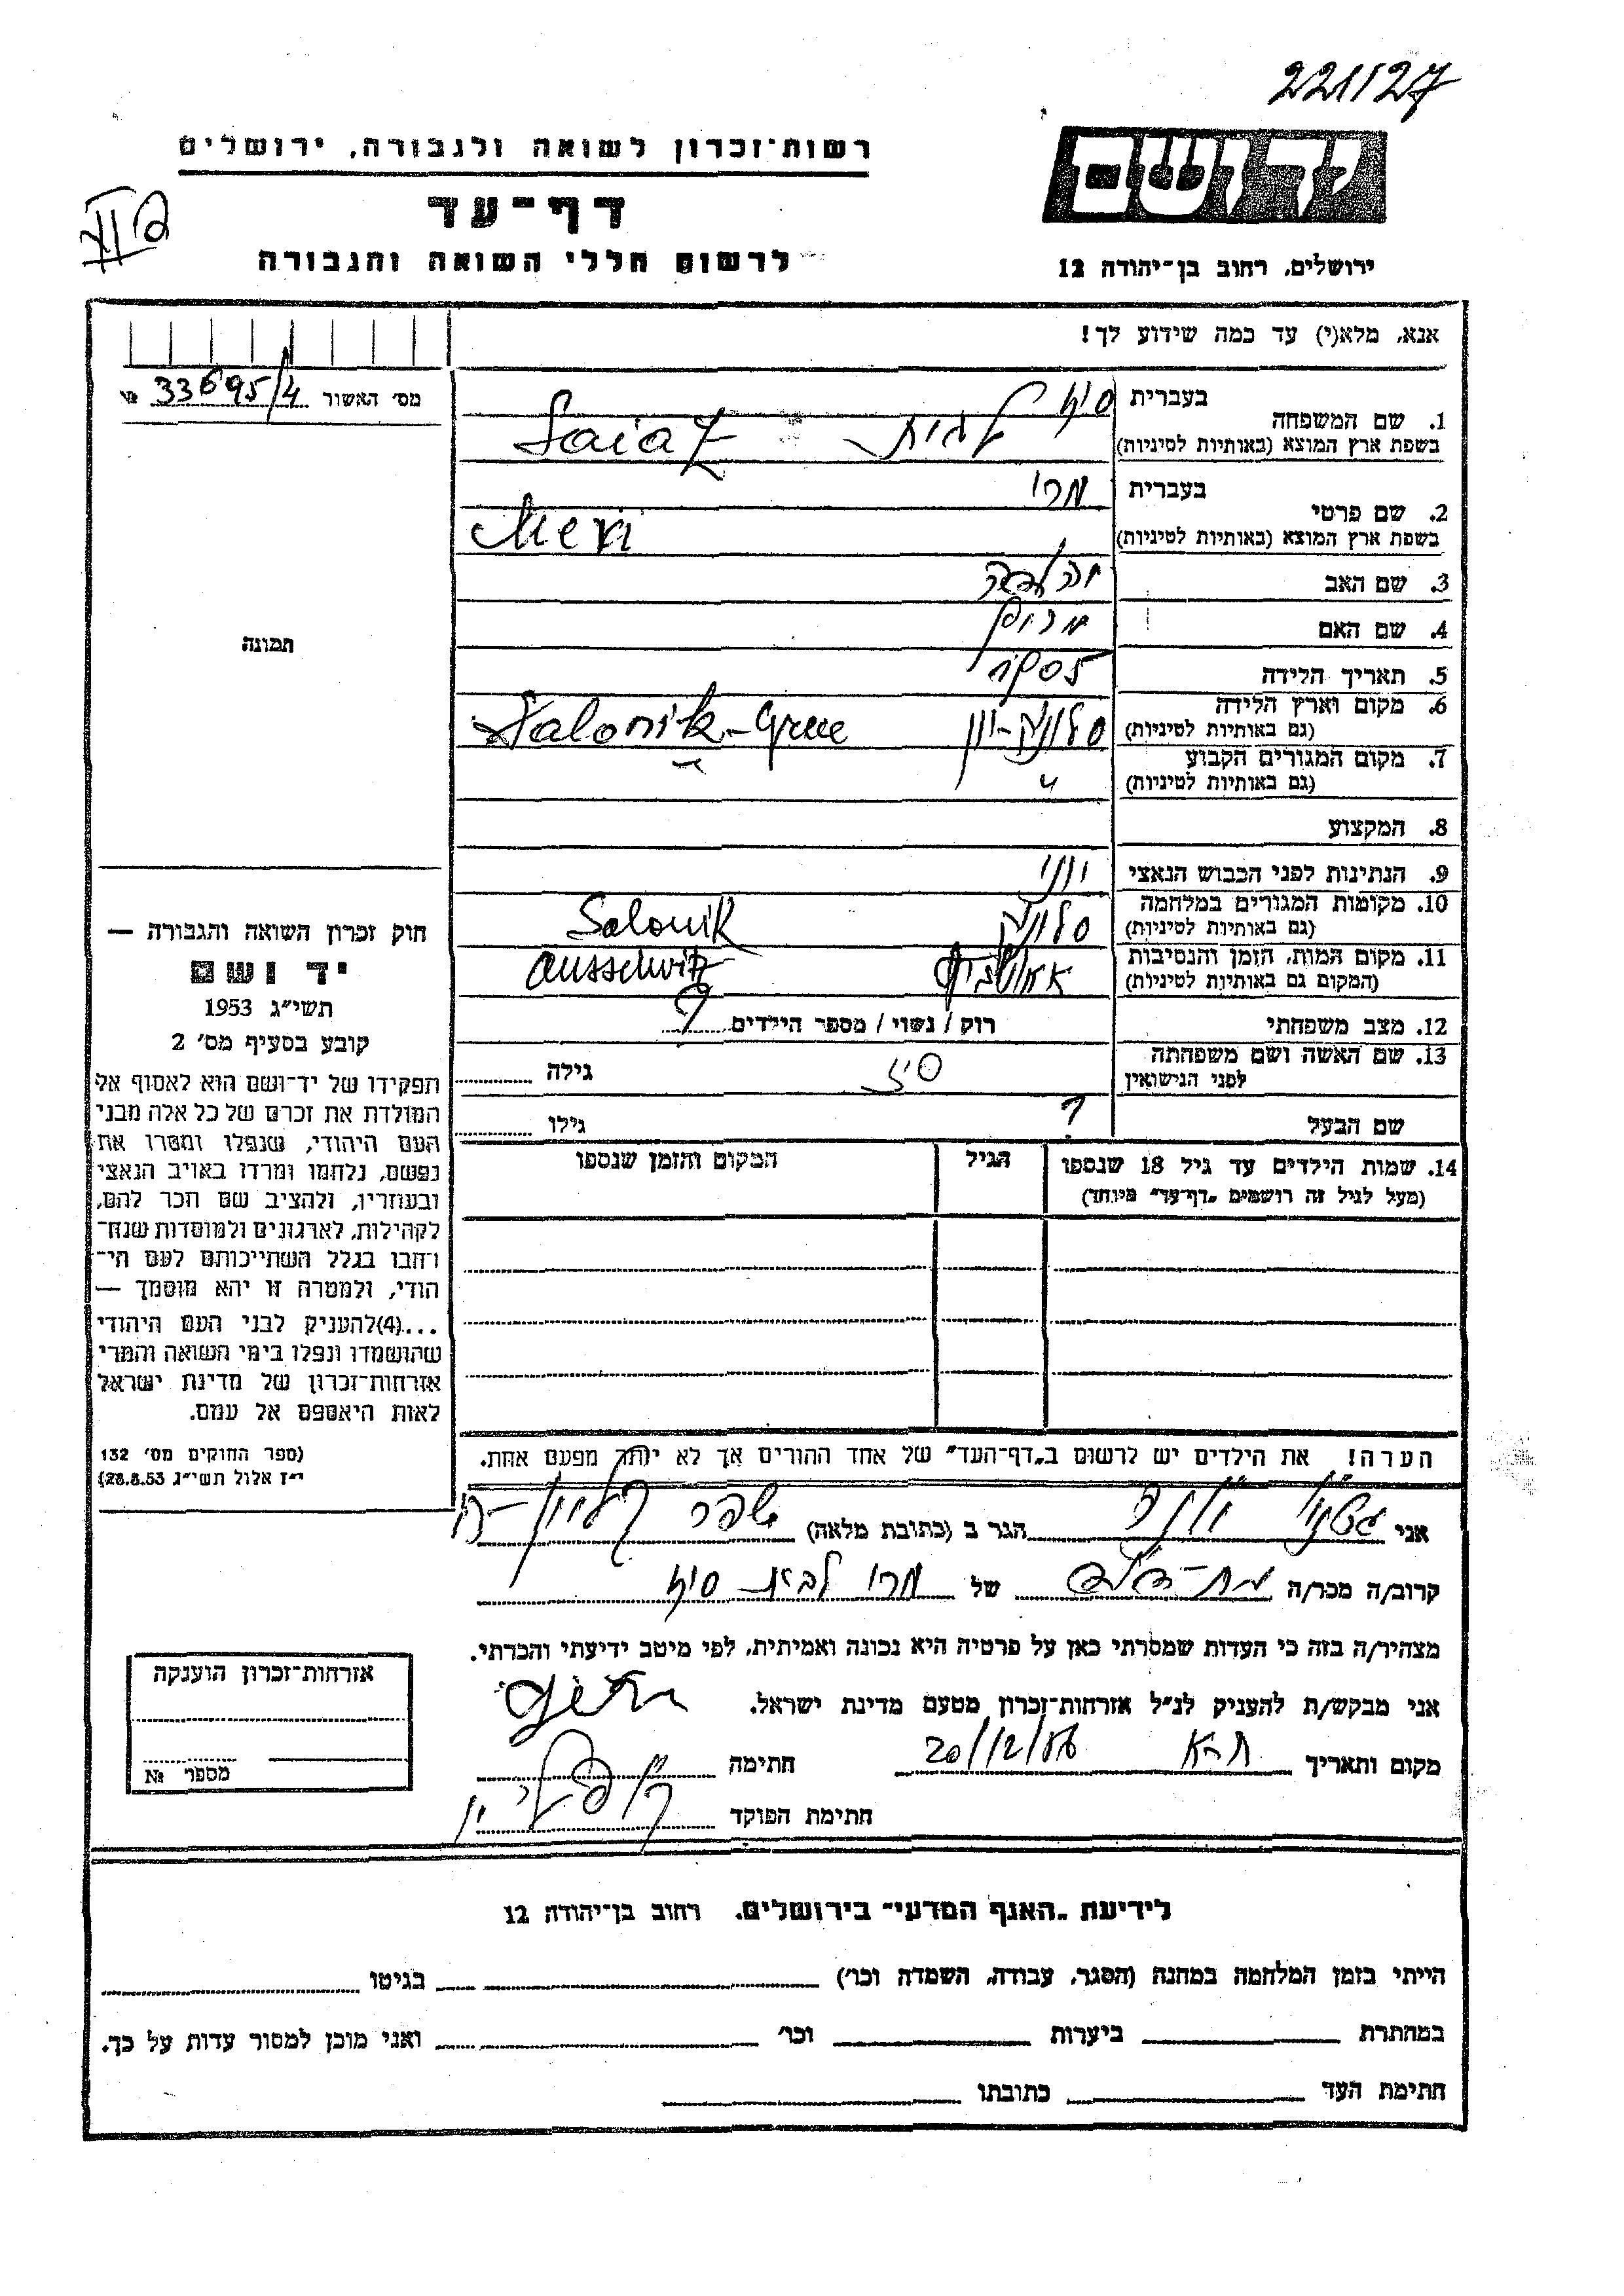 221/27
רשות־זכרון לשואה ולגבורה, ירושלים
יד ושם
דף־עד
לרשום חללי השואה והגבורה
ירושלים, רחוב בן־יהודה 12
אנא, מלא(י) עד כמה שידוע לך!
מס׳ האשור 33695/4 №
1. שם המשפחה
בעברית
בשפת ארץ המוצא (באותיות לטיניות) Saiaz
2. שם פרטי
בעברית מרי
בשפת ארץ המוצא (באותיות לטיניות) Meri
3. שם האב
4. שם האם
5. תאריך הלידה 1905
6. מקום וארץ הלידה
(גם באותיות לטיניות) סלוניק-יוון Salonik-Grece
7. מקום המגורים הקבוע
(גם באותיות לטיניות) "
8. המקצוע
9. הנתינות לפני הכבוש הנאצי יווני
10. מקומות המגורים במלחמה
(גם באותיות לטיניות) סלוניק Salonik
11. מקום המות, הזמן והנסיבות
(המקום גם באותיות לטיניות) אאושוויץ Ausschwitz
12. מצב משפחתי רווק / נשוי / מספר הילדים ?
13. שם האשה ושם משפחתה
לפני הנישואין גילה
שם הבעל ? גילו
14. שמות הילדים עד גיל 18 שנספו
(מעל לגיל זה רושמים „דף־עד״ מיוחד)
הגיל
המקום והזמן שנספו
הערה! את הילדים יש לרשום ב„דף־העד״ של אחד ההורים אך לא יותר מפעם אחת.
תמונה
חוק זכרון השואה והגבורה —
יד ושם
תשי״ג 1953
קובע בסעיף מס׳ 2
תפקידו של יד־ושם הוא לאסוף אל
המולדת את זכרם של כל אלה מבני
העם היהודי, שנפלו ומסרו את
נפשם, נלחמו ומרדו באויב הנאצי
ובעוזריו, ולהציב שם וזכר להם,
לקהילות, לארגונים ולמוסדות שנח־
רבו בגלל השתייכותם לעם הי־
הודי, ולמטרה זו יהא מוסמך —
...(4) להעניק לבני העם היהודי
שהושמדו ונפלו בימי השואה והמרי
אזרחות־זכרון של מדינת ישראל
לאות היאספם אל עמם.
(ספר החוקים מס׳ 132
י״ז אלול תשי״ג 28.8.53)
אני הגר ב (כתובת מלאה)
קרוב/ה מכר/ה של מרי
מצהיר/ה בזה כי העדות שמסרתי כאן על פרטיה היא נכונה ואמיתית, לפי מיטב ידיעתי והכרתי.
אני מבקש/ת להעניק לנ״ל אזרחות־זכרון מטעם מדינת ישראל.
מקום ותאריך ת-א 20/12/56 חתימה
חתימת הפוקד
אזרחות־זכרון הוענקה
מספר №
לידיעת „האגף המדעי״ בירושלים. רחוב בן־יהודה 12
הייתי בזמן המלחמה במחנה (הסגר, עבודה, השמדה וכו׳) בגיטו
במחתרת ביערות וכו׳ ואני מוכן למסור עדות על כך.
חתימת העד כתובתו